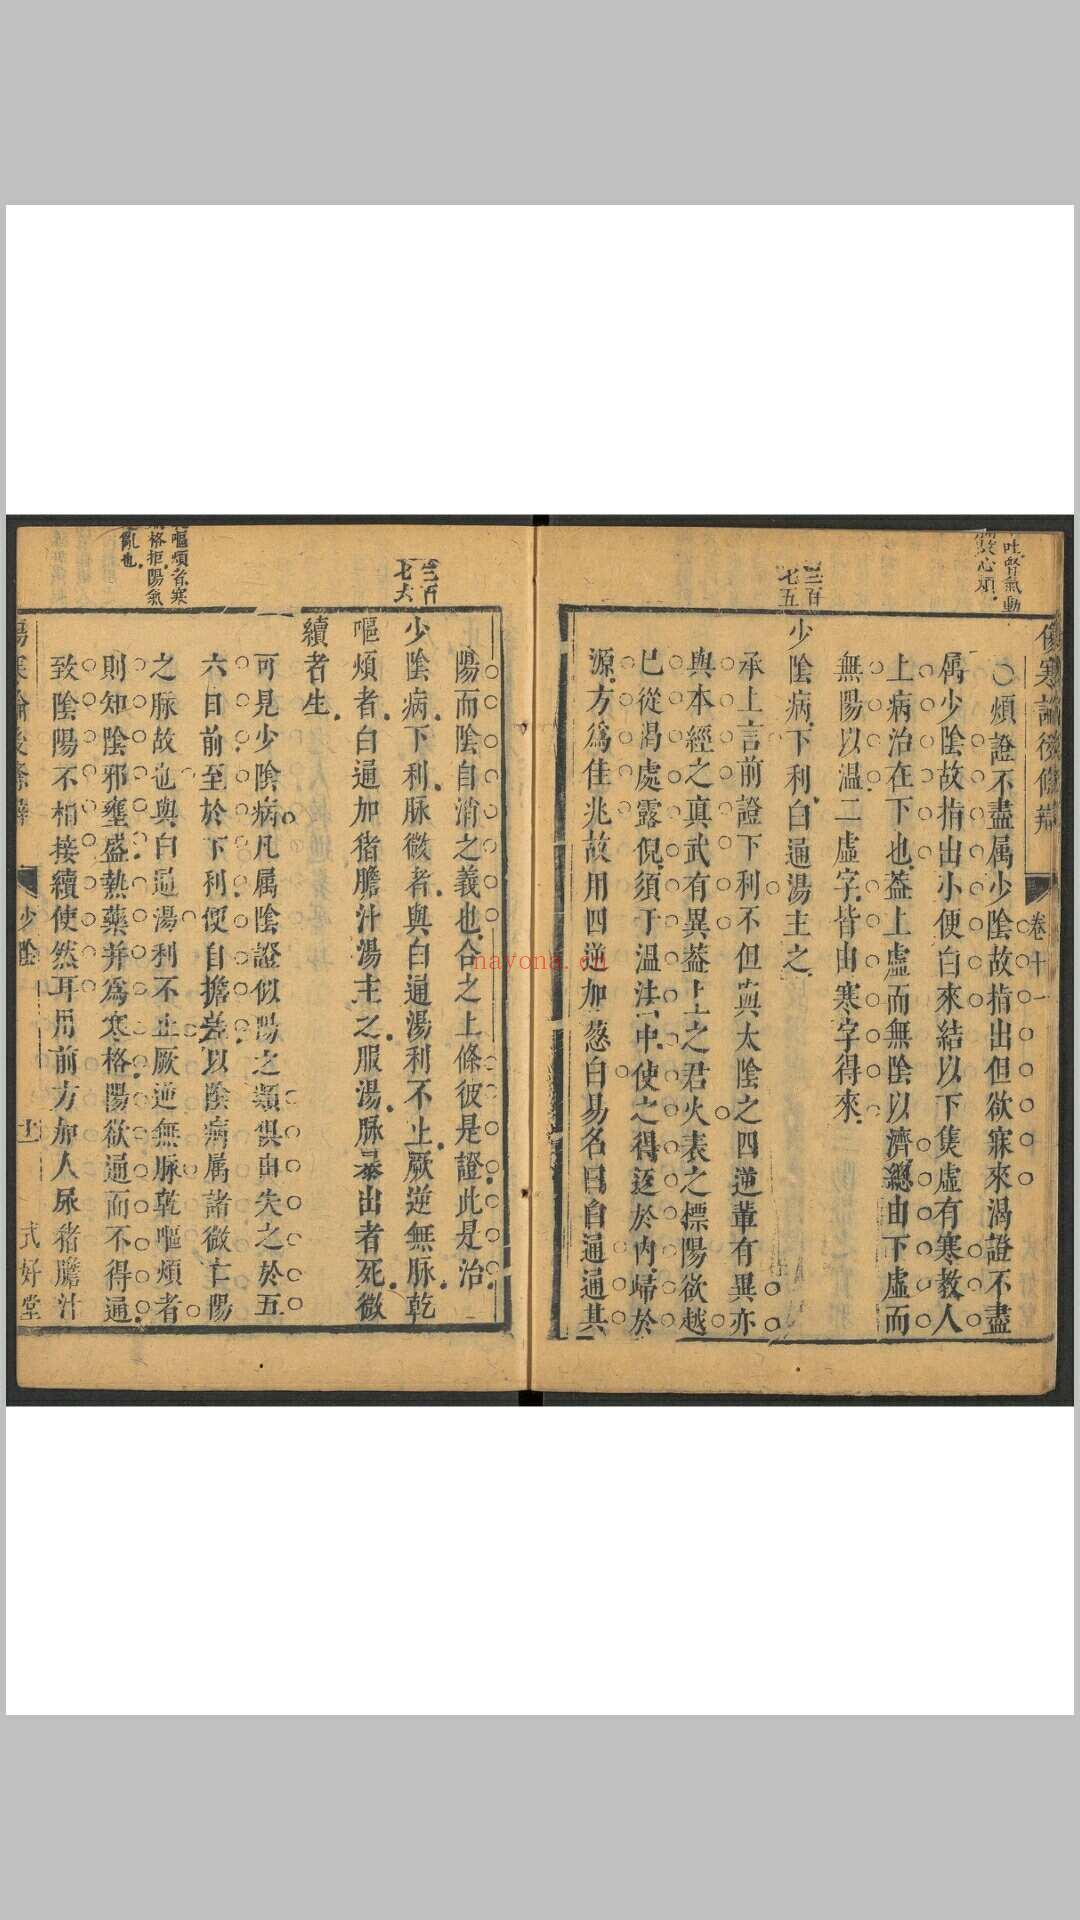 吐腎氣動
心煩
傷寒論後條辯
卷十一
○煩證不盡属少陰故指出但欲寐來渴證不盡
属少陰故指出小便白來結以下焦虛有寒教人
上病治在下也葢上虛而無陰以濟總由下虛而
無陽以温二虛字皆由寒字得來
三百七五
少陰病下利白通湯主之
承上言前證下利不但與太陰之四逆軰有異亦
與本經之真武有異葢上之君火表之標陽欲越
已從渴處露倪須于温法中使之得返於内歸於
源方爲佳兆故用四逆加葱白易名曰白通通其
陽而陰自消之義也合之上條彼是證此是治
三百七六
少陰病下利脉微者與白通湯利不止厥逆無脉乾
嘔煩者白通加猪膽汁湯主之服湯脉暴出者死微
續者生
可見少陰病凡属陰證似陽之類俱由失之於五
六日前至於下利便自擔差以陰病属諸微亡陽
之脉故也與白通湯利不止厥逆無脉乾嘔煩者
則知陰邪壅盛熱藥并爲寒格陽欲通而不得通
致陰陽不相接續使然耳用前方加人尿猪膽汁
嘔煩者寒
格拒陽氣
亂也
傷寒論後條辯
少陰
十一
式好堂
nayona.cn